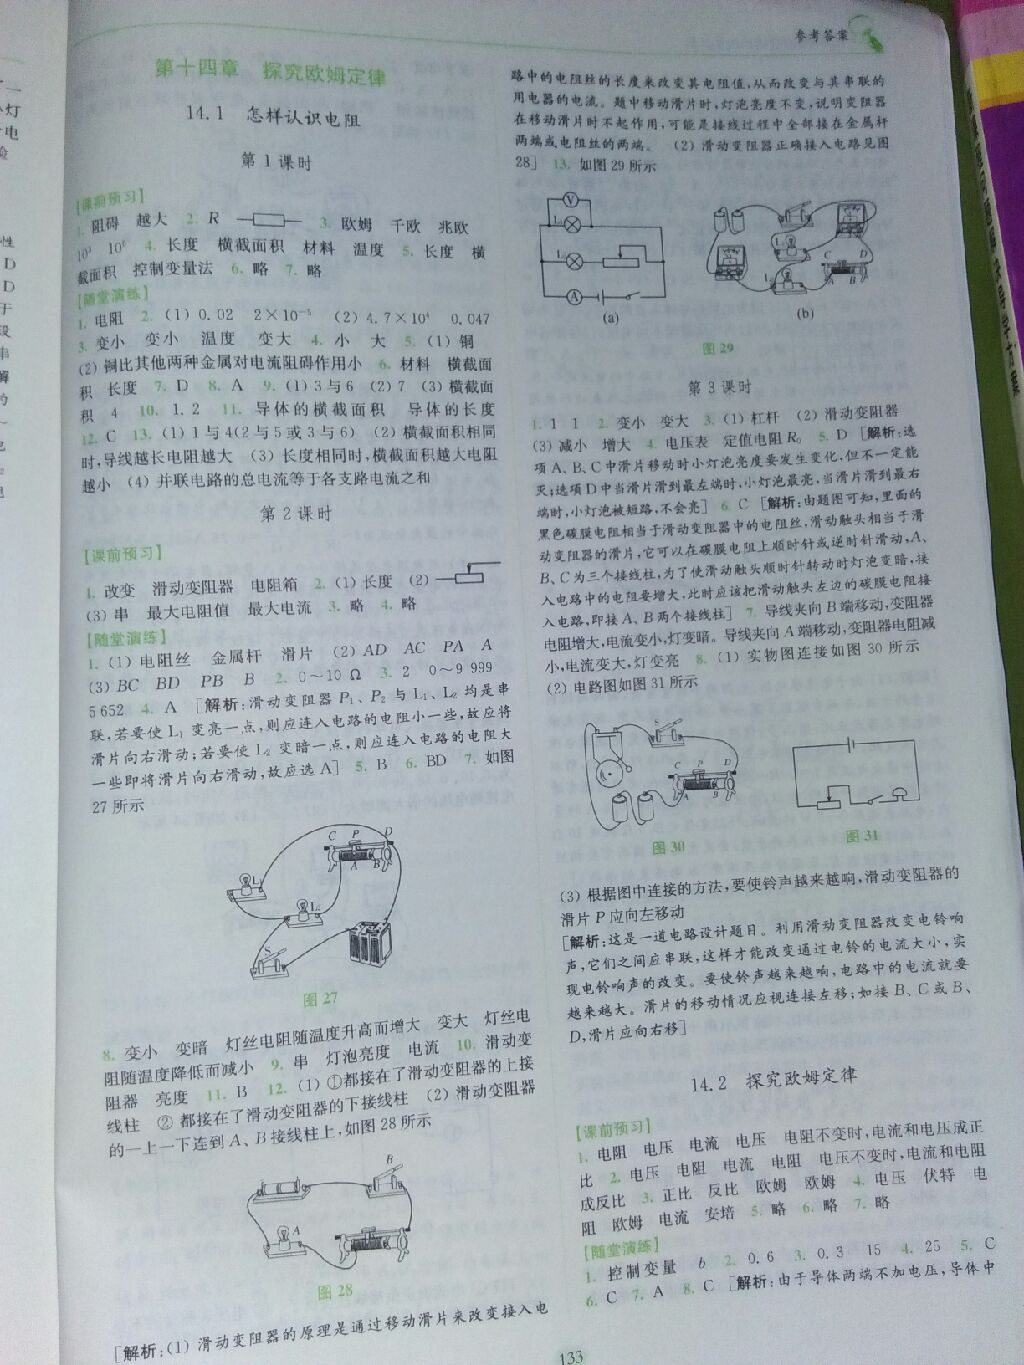 参考答案
第十四章 探究欧姆定律
14.1 怎样认识电阻
第1课时
【课前预习】
1. 阻碍 越大 2. R 3. 欧姆 千欧 兆欧
10³ 10⁶ 4. 长度 横截面积 材料 温度 5. 长度 横
截面积 控制变量法 6. 略 7. 略
【随堂演练】
1. 电阻 2. (1) 0.02 2×10⁻⁵ (2) 4.7×10⁴ 0.047
3. 变小 变小 温度 变大 4. 小 大 5. (1) 铜
(2) 铜比其他两种金属对电流阻碍作用小 6. 材料 横截面
积 长度 7. D 8. A 9. (1) 3与6 (2) 7 (3) 横截面
积 4 10. 1、2 11. 导体的横截面积 导体的长度
12. C 13. (1) 1与4(2与5或3与6) (2) 横截面积相同
时,导线越长电阻越大 (3) 长度相同时,横截面积越大电阻
越小 (4) 并联电路的总电流等于各支路电流之和
第2课时
【课前预习】
1. 改变 滑动变阻器 电阻箱 2. (1) 长度 (2)
(3) 串 最大电阻值 最大电流 3. 略 4. 略
【随堂演练】
1. (1) 电阻丝 金属杆 滑片 (2) AD AC PA A
(3) BC BD PB B 2. 0～10 Ω 3. 2 0～9 999
5 652 4. A [解析:滑动变阻器 P₁、P₂ 与 L₁、L₂ 均是串
联,若要使 L₁ 变亮一点,则应连入电路的电阻小一些,故应将
滑片向右滑动;若要使 L₂ 变暗一点,则应连入电路的电阻大
一些即将滑片向右滑动,故应选 A] 5. B 6. BD 7. 如图
27 所示
C P D
A B
L₁
L₂
S
图 27
8. 变小 变暗 灯丝电阻随温度升高而增大 变大 灯丝电
阻随温度降低而减小 9. 串 灯泡亮度 电流 10. 滑动变
阻器 亮度 11. B 12. (1) ①都接在了滑动变阻器的上接
线柱 ② 都接在了滑动变阻器的下接线柱 (2) 滑动变阻器
的一上一下连到 A、B 接线柱上,如图 28 所示
B
A
图 28
[解析:(1) 滑动变阻器的原理是通过移动滑片来改变接入电
路中的电阻丝的长度来改变其电阻值,从而改变与其串联的
用电器的电流。题中移动滑片时,灯泡亮度不变,说明变阻器
在移动滑片时不起作用,可能是接线过程中全部接在金属杆
两端或电阻丝的两端。 (2) 滑动变阻器正确接入电路见图
28] 13. 如图 29 所示
V
A
C D
(a) (b)
图 29
第3课时
1. 1 1 2. 变小 变大 3. (1) 杠杆 (2) 滑动变阻器
(3) 减小 增大 4. 电压表 定值电阻 R₀ 5. D [解析:选
项 A、B、C 中滑片移动时小灯泡亮度要发生变化,但不一定能
灭;选项 D 中当滑片滑到最左端时,小灯泡最亮,当滑片滑到最右
端时,小灯泡被短路,不会亮] 6. C [解析:由题图可知,里面的
黑色碳膜电阻相当于滑动变阻器中的电阻丝,滑动触头相当于滑
动变阻器的滑片,它可以在碳膜电阻上顺时针或逆时针滑动,A、
B、C 为三个接线柱,为了使滑动触头顺时针转动时灯泡变暗,接
入电路中的电阻要增大,此时应该把滑动触头左边的碳膜电阻接
入电路,即接 A、B 两个接线柱] 7. 导线夹向 B 端移动,变阻器
电阻增大,电流变小,灯变暗。导线夹向 A 端移动,变阻器电阻减
小,电流变大,灯变亮 8. (1) 实物图连接如图 30 所示
(2) 电路图如图 31 所示
S
C P D
A B
图 30 图 31
(3) 根据图中连接的方法,要使铃声越来越响,滑动变阻器的
滑片 P 应向左移动
[解析:这是一道电路设计题目。利用滑动变阻器改变电铃响
声,它们之间应串联,这样才能改变通过电铃的电流大小,实
现电铃响声的改变。要使铃声越来越响,电路中的电流就要
越来越大。滑片的移动情况应视连接左移;如接 B、C 或 B、
D,滑片应向右移]
14.2 探究欧姆定律
【课前预习】
1. 电阻 电压 电流 电压 电阻不变时,电流和电压成正
比 2. 电压 电阻 电流 电阻 电压不变时,电流和电阻
成反比 3. 正比 反比 欧姆 欧姆 4. 电压 伏特 电
阻 欧姆 电流 安培 5. 略 6. 略 7. 略
【随堂演练】
1. 控制变量 b 2. 0.6 3. 0.3 15 4. 25 5. C
6. C 7. A 8. C [解析:由于导体两端不加电压,导体中
133